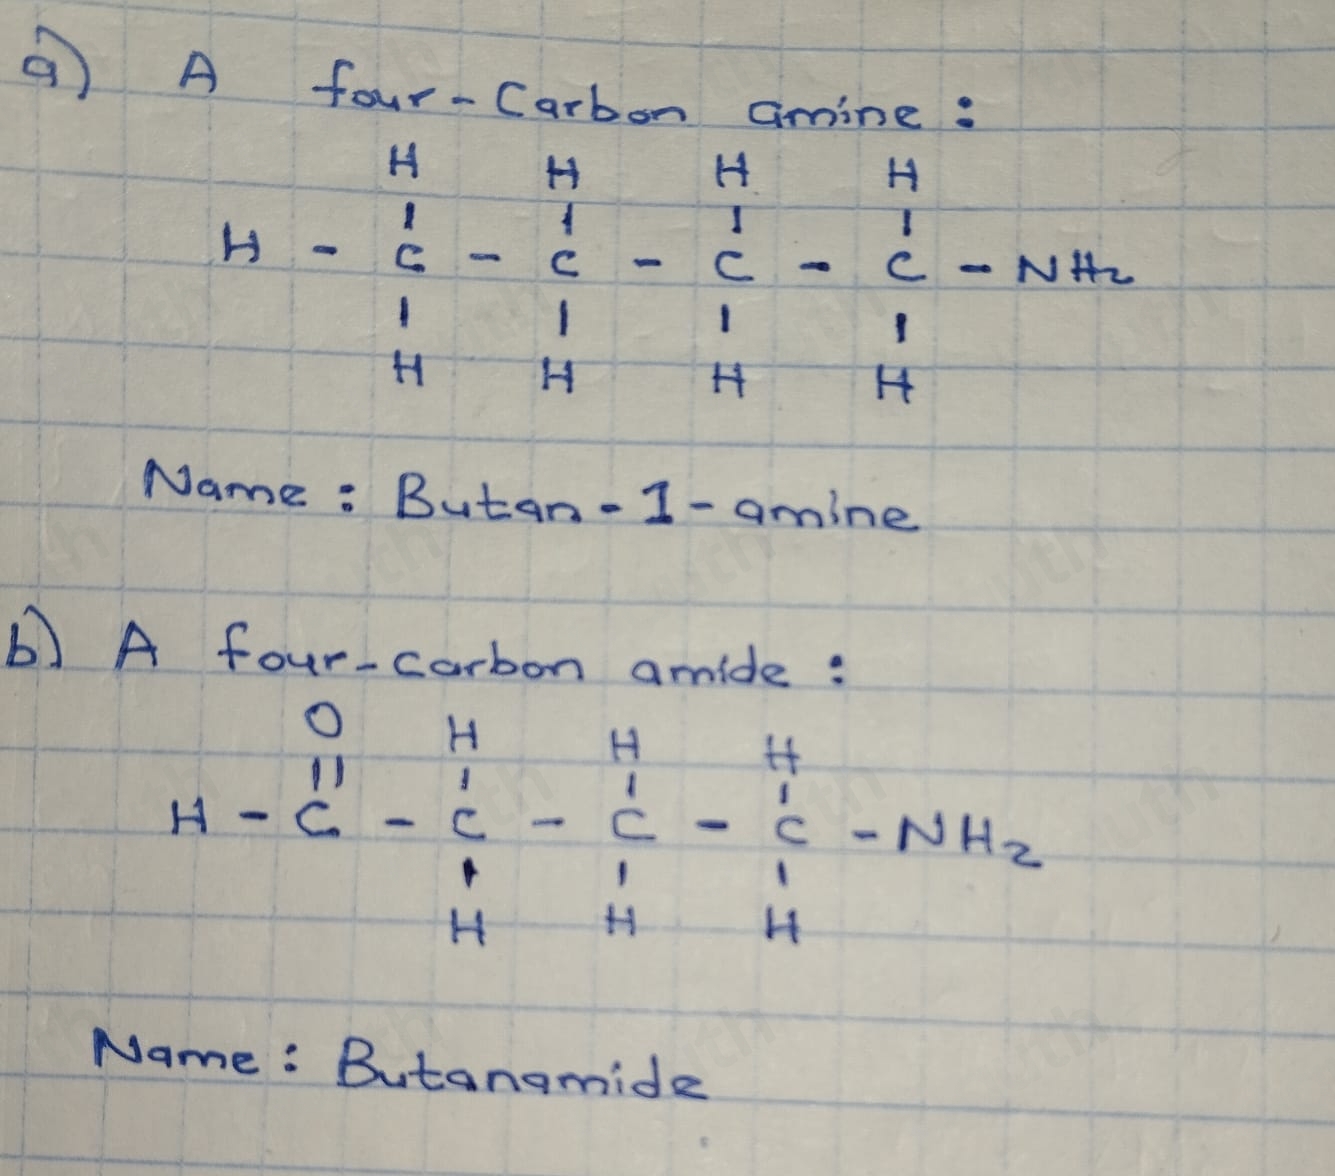 a) A four-Carbon amine:
H H H H
I I I I
H - C - C - C - C - NH₂
I I I I
H H H H
Name: Butan-1-amine
b) A four-carbon amide:
O H H H
|| I I I
H - C - C - C - C - NH₂
I I I
H H H
Name: Butanamide